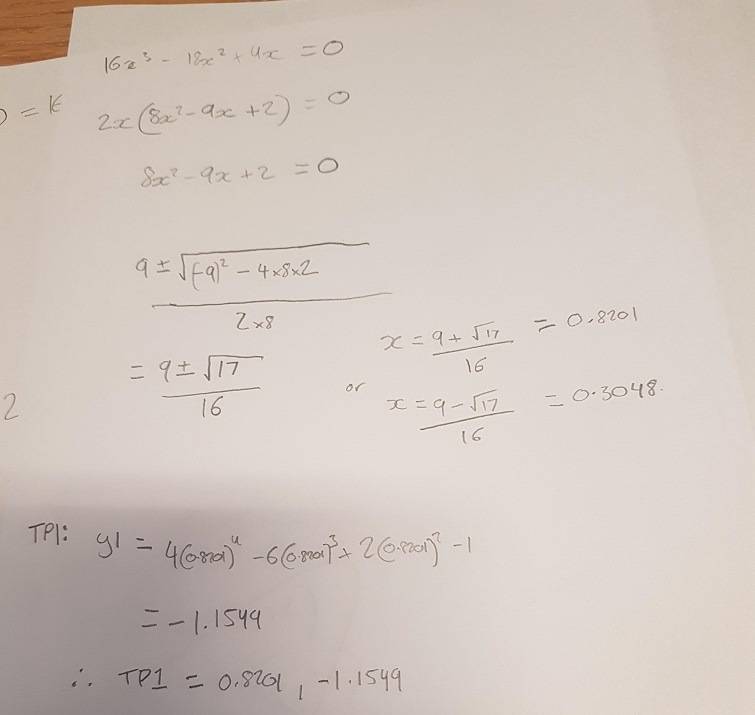 16x³ - 18x² + 4x = 0
2x(8x² - 9x + 2) = 0
8x² - 9x + 2 = 0
9 ± √(-9)² - 4×8×2
2×8
= 9 ± √17
16
x = 9 + √17 = 0.8201
16
or
x = 9 - √17 = 0.3048.
16
2
TP1: y1 = 4(0.8201)⁴ - 6(0.8201)³ + 2(0.8201)² - 1
= -1.1549
∴ TP1 = 0.8201, -1.1549